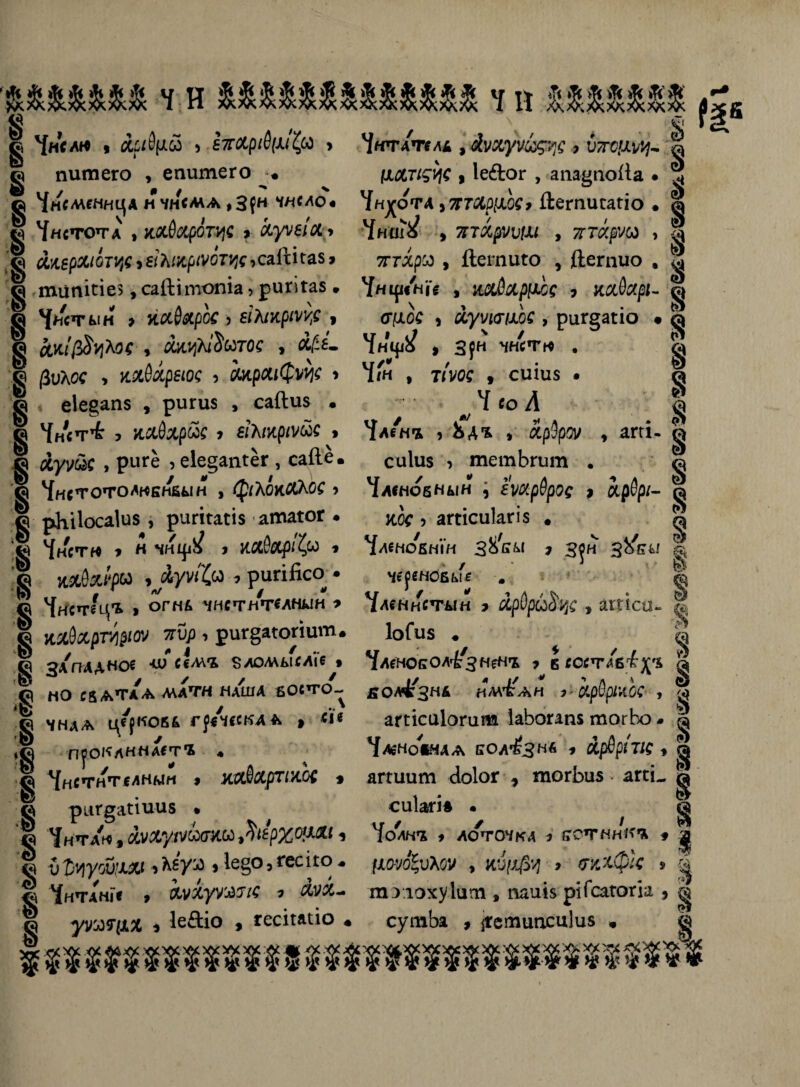 Ч И Ч П
Числю , ἀριθμῶ , ἐπαριθμίζω ,
numero , enumero .
Численница и числѧ , Зри число.
Чистота , καθαρότης , ἁγνεία ,
ἀκεραιότης , εἰλικρινότης , castitas ,
munities , castimonia , puritas .
Чистый , καθαρὸς , εἰλικρινὴς ,
ἀκίβδηλος , ἀκηλίδωτος , ἀβέ-
βυλος , καθάρειος , ἀκραιφνὴς ,
elegans , purus , castus .
Чистѣ , καθαρῶς , εἰλικρινῶς ,
ἁγνῶς , pure , eleganter , castè.
Чистотолюбивый , φιλόκαλος ,
philocalus , puritatis amator .
Чистю , и чищꙋ , καθαρίζω ,
καθαίρω , ἁγνίζω , purifico .
Чистецъ , огнь чистителный ,
καθαρτήριον πῦρ , purgatorium.
западное ѡ семъ Зломысліе ,
но свѧтаѧ мати наша восто-
чнаѧ церковь греческаѧ , сіе
проклинаетъ .
Чистителный , καθαρτικὸς ,
purgatiuus .
Читаю , ἀναγινώσκω , διέρχομαι ,
ὑφηγοῦμαι , λέγω , lego , recito .
Читаніе , ἀνάγνωσις , ἀνά-
γνωσμα , lectio , recitatio .
Читатель , ἀναγνώςης , ὑπομνη-
ματιςὴς , lector , anagnosta .
Чихота , πταρμὸς , sternutatio .
Чишꙋ , πτάρνυμι , πτάρνω ,
πτάρω , sternuto , sternuo .
Чищеніе , καθαρμὸς , καθαρι-
σμὸς , ἁγνισμὸς , purgatio .
Чищꙋ , Зри чистю .
Чій , τίνος , cuius .
Ч ю Λ
Членъ , ꙋдъ , ἄρθρον , arti-
culus , membrum .
Членовный , ἔναρθρος , ἀρθρι-
κὸς , articularis .
Членовнїи зꙋбы , Зри зꙋбы
череновые .
Членистый , ἀρθρώδης , articu-
losus .
Членоволѣзненъ , в составѣхъ
волѣзнь имѣѧй , ἀρθρικὸς ,
articulorum laborans morbo .
Членовнаѧ волѣзнь , ἀρθρίτις ,
artuum dolor , morbus arti-
cularis .
Чолнъ , лоточка , вотникъ ,
μονόξυλον , κύμβη , σκάφὶς ,
monoxylum , nauis piscatoria ,
cymba , remunculus .